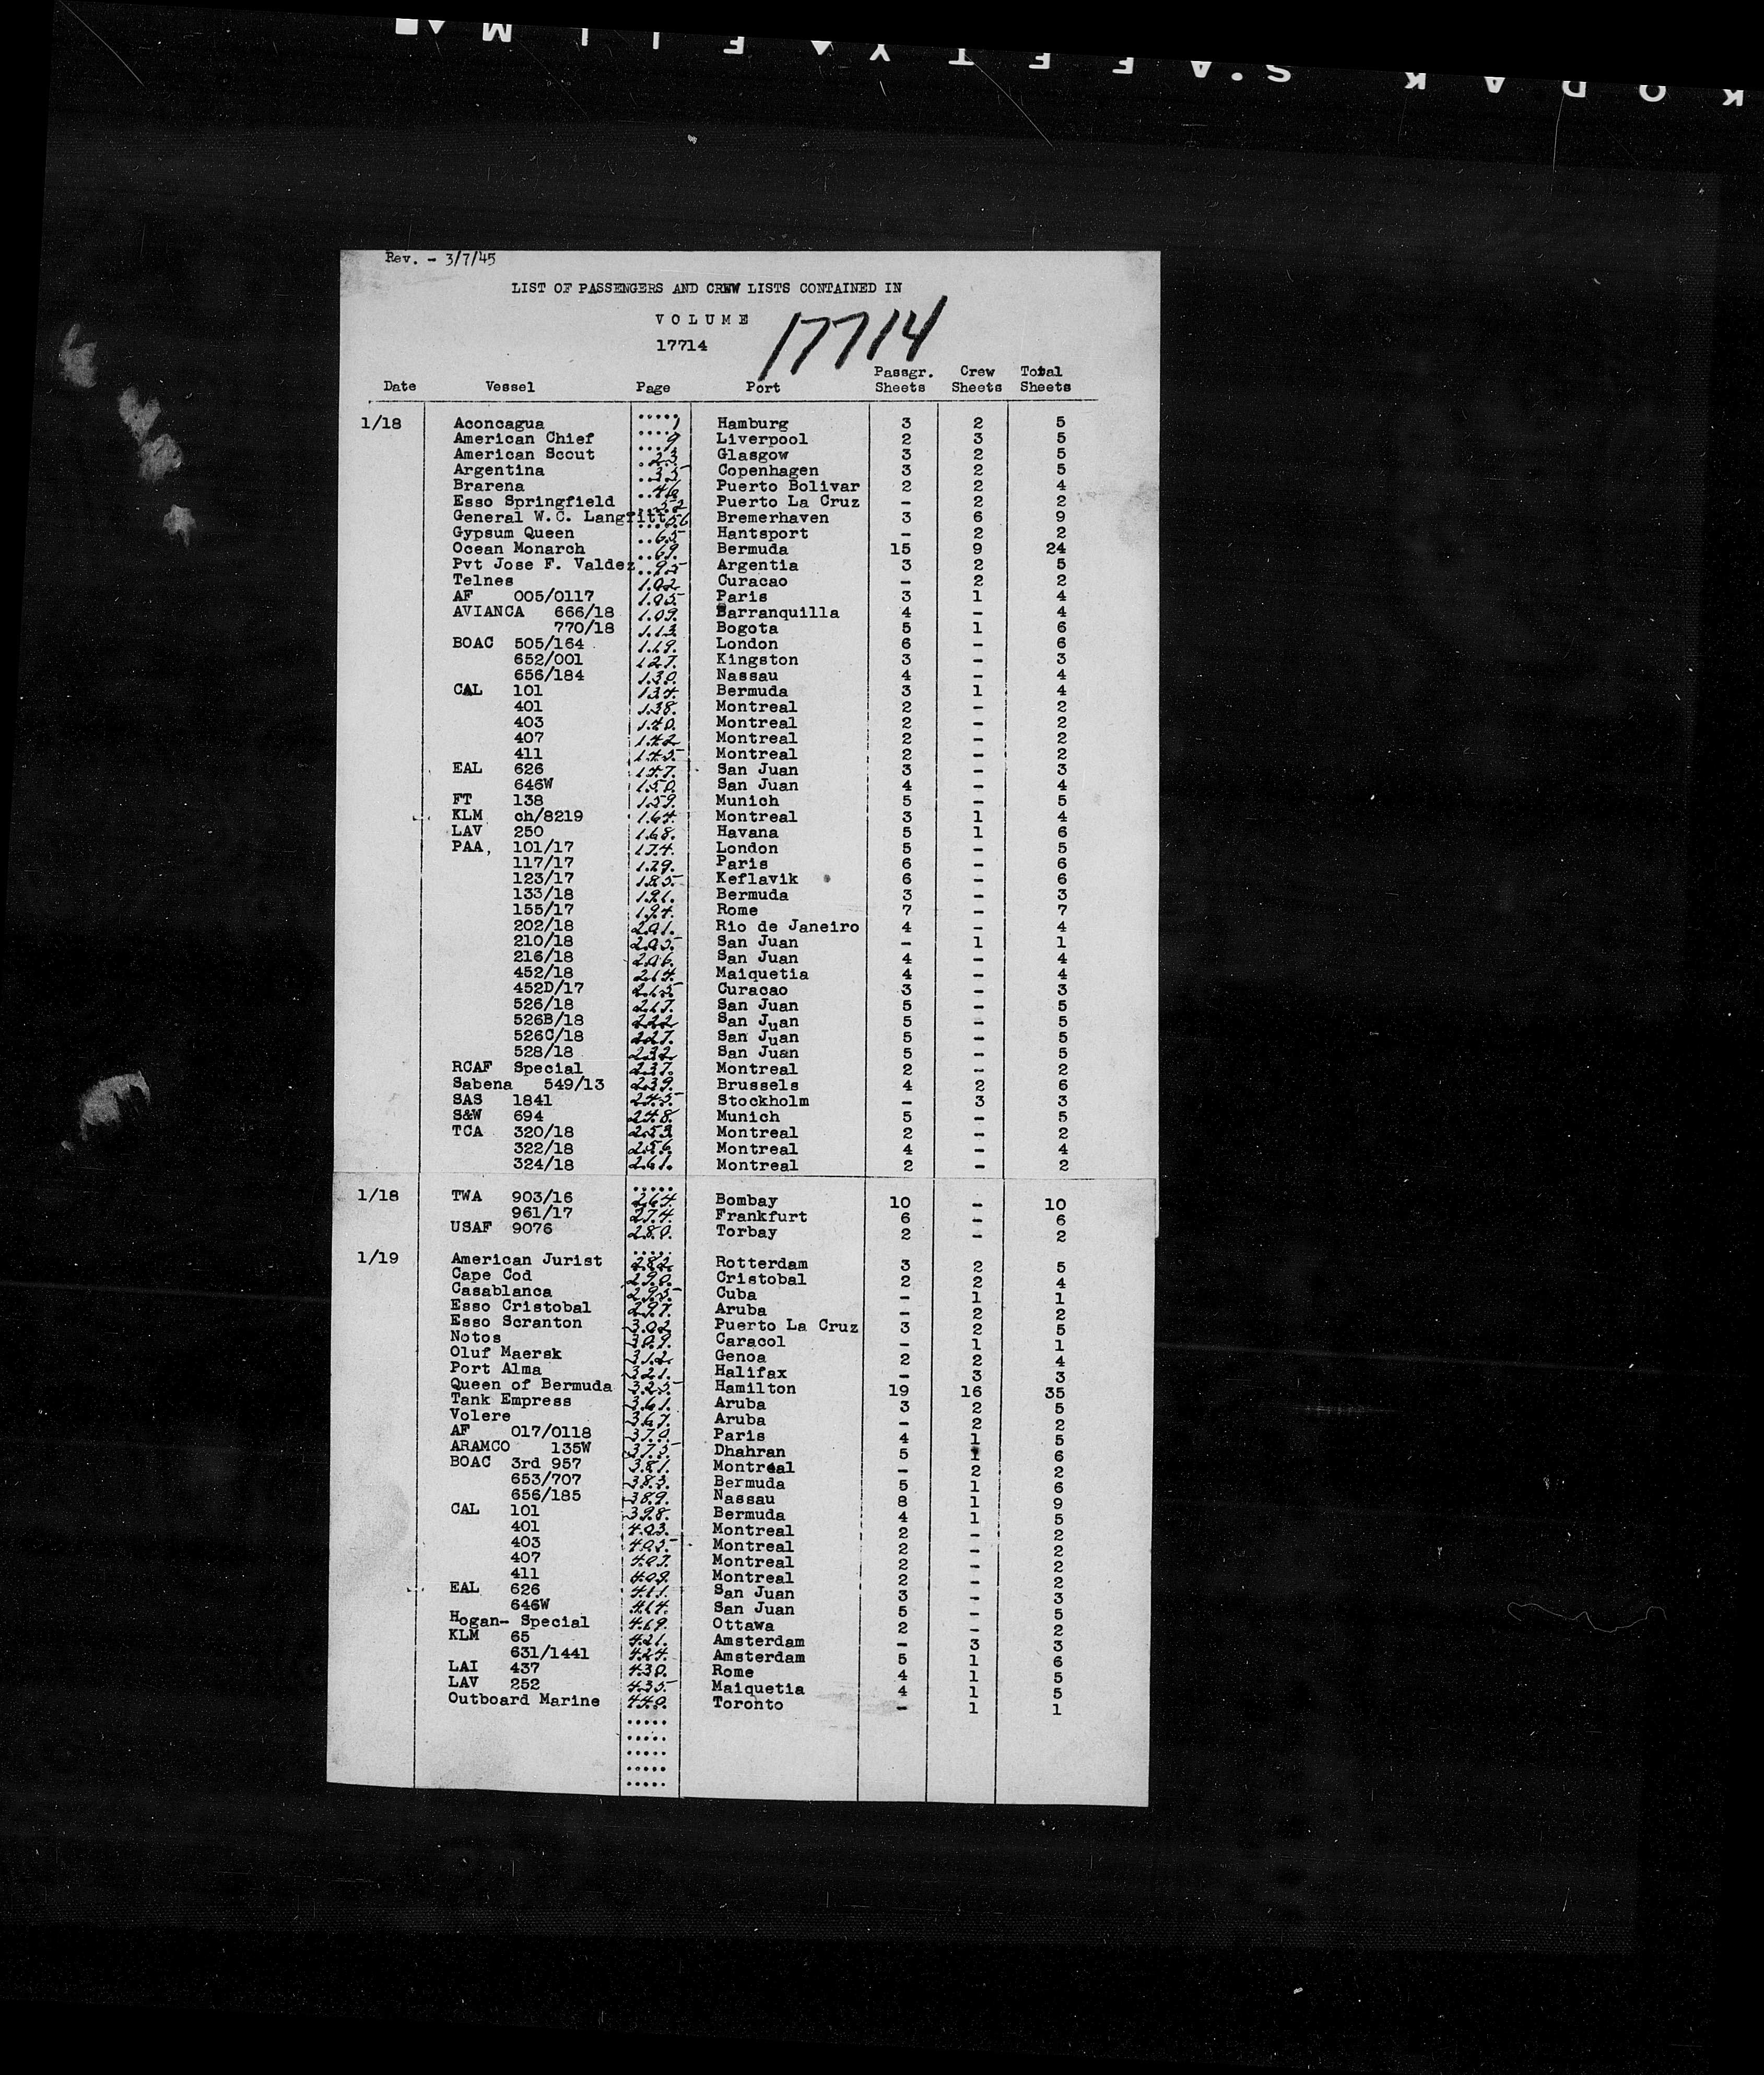 KODAK S.AFETY FILM
Rev. - 3/7/45
LIST OF PASSENGERS AND CREW LISTS CONTAINED IN
VOLUME
17714 17714
Date Vessel Page Port Passgr. Sheets Crew Sheets Total Sheets
1/18 Aconcagua 1 Hamburg 3 2 5
American Chief 9 Liverpool 2 3 5
American Scout 23 Glasgow 3 2 5
Argentina 35 Copenhagen 3 2 5
Brarena 46 Puerto Bolivar 2 2 4
Esso Springfield 52 Puerto La Cruz - 2 2
General W.C. Langfitt 56 Bremerhaven 3 6 9
Gypsum Queen 65 Hantsport - 2 2
Ocean Monarch 69 Bermuda 15 9 24
Pvt Jose F. Valdez 95 Argentia 3 2 5
Telnes 102 Curacao - 2 2
AF 005/0117 105 Paris 3 1 4
AVIANCA 666/18 109 Barranquilla 4 - 4
770/18 113 Bogota 5 1 6
BOAC 505/164 119 London 6 - 6
652/001 127 Kingston 3 - 3
656/184 130 Nassau 4 - 4
CAL 101 134 Bermuda 3 1 4
401 138 Montreal 2 - 2
403 140 Montreal 2 - 2
407 142 Montreal 2 - 2
411 145 Montreal 2 - 2
EAL 626 147 San Juan 3 - 3
646W 150 San Juan 4 - 4
FT 138 159 Munich 5 - 5
KLM ch/8219 164 Montreal 3 1 4
LAV 250 168 Havana 5 1 6
PAA, 101/17 174 London 5 - 5
117/17 179 Paris 6 - 6
123/17 185 Keflavik 6 - 6
133/18 191 Bermuda 3 - 3
155/17 194 Rome 7 - 7
202/18 201 Rio de Janeiro 4 - 4
210/18 205 San Juan - 1 1
216/18 206 San Juan 4 - 4
452/18 214 Maiquetia 4 - 4
452D/17 215 Curacao 3 - 3
526/18 217 San Juan 5 - 5
526B/18 222 San Juan 5 - 5
526C/18 227 San Juan 5 - 5
528/18 232 San Juan 5 - 5
RCAF Special 237 Montreal 2 - 2
Sabena 549/13 239 Brussels 4 2 6
SAS 1841 245 Stockholm - 3 3
S&W 694 248 Munich 5 - 5
TCA 320/18 253 Montreal 2 - 2
322/18 256 Montreal 4 - 4
324/18 261 Montreal 2 - 2
1/18 TWA 903/16 264 Bombay 10 - 10
961/17 274 Frankfurt 6 - 6
USAF 9076 280 Torbay 2 - 2
1/19 American Jurist 282 Rotterdam 3 2 5
Cape Cod 290 Cristobal 2 2 4
Casablanca 295 Cuba - 1 1
Esso Cristobal 297 Aruba - 2 2
Esso Scranton 302 Puerto La Cruz 3 2 5
Notos 309 Caracol - 1 1
Oluf Maersk 312 Genoa 2 2 4
Port Alma 321 Halifax - 3 3
Queen of Bermuda 325 Hamilton 19 16 35
Tank Empress 361 Aruba 3 2 5
Volere 367 Aruba - 2 2
AF 017/0118 370 Paris 4 1 5
ARAMCO 135W 375 Dhahran 5 1 6
BOAC 3rd 957 381 Montreal - 2 2
653/707 383 Bermuda 5 1 6
656/185 389 Nassau 8 1 9
CAL 101 398 Bermuda 4 1 5
401 403 Montreal 2 - 2
403 405 Montreal 2 - 2
407 407 Montreal 2 - 2
411 409 Montreal 2 - 2
EAL 626 411 San Juan 3 - 3
646W 414 San Juan 5 - 5
Hogan- Special 419 Ottawa 2 - 2
KLM 65 421 Amsterdam - 3 3
631/1441 424 Amsterdam 5 1 6
LAI 437 430 Rome 4 1 5
LAV 252 435 Maiquetia 4 1 5
Outboard Marine 440 Toronto - 1 1